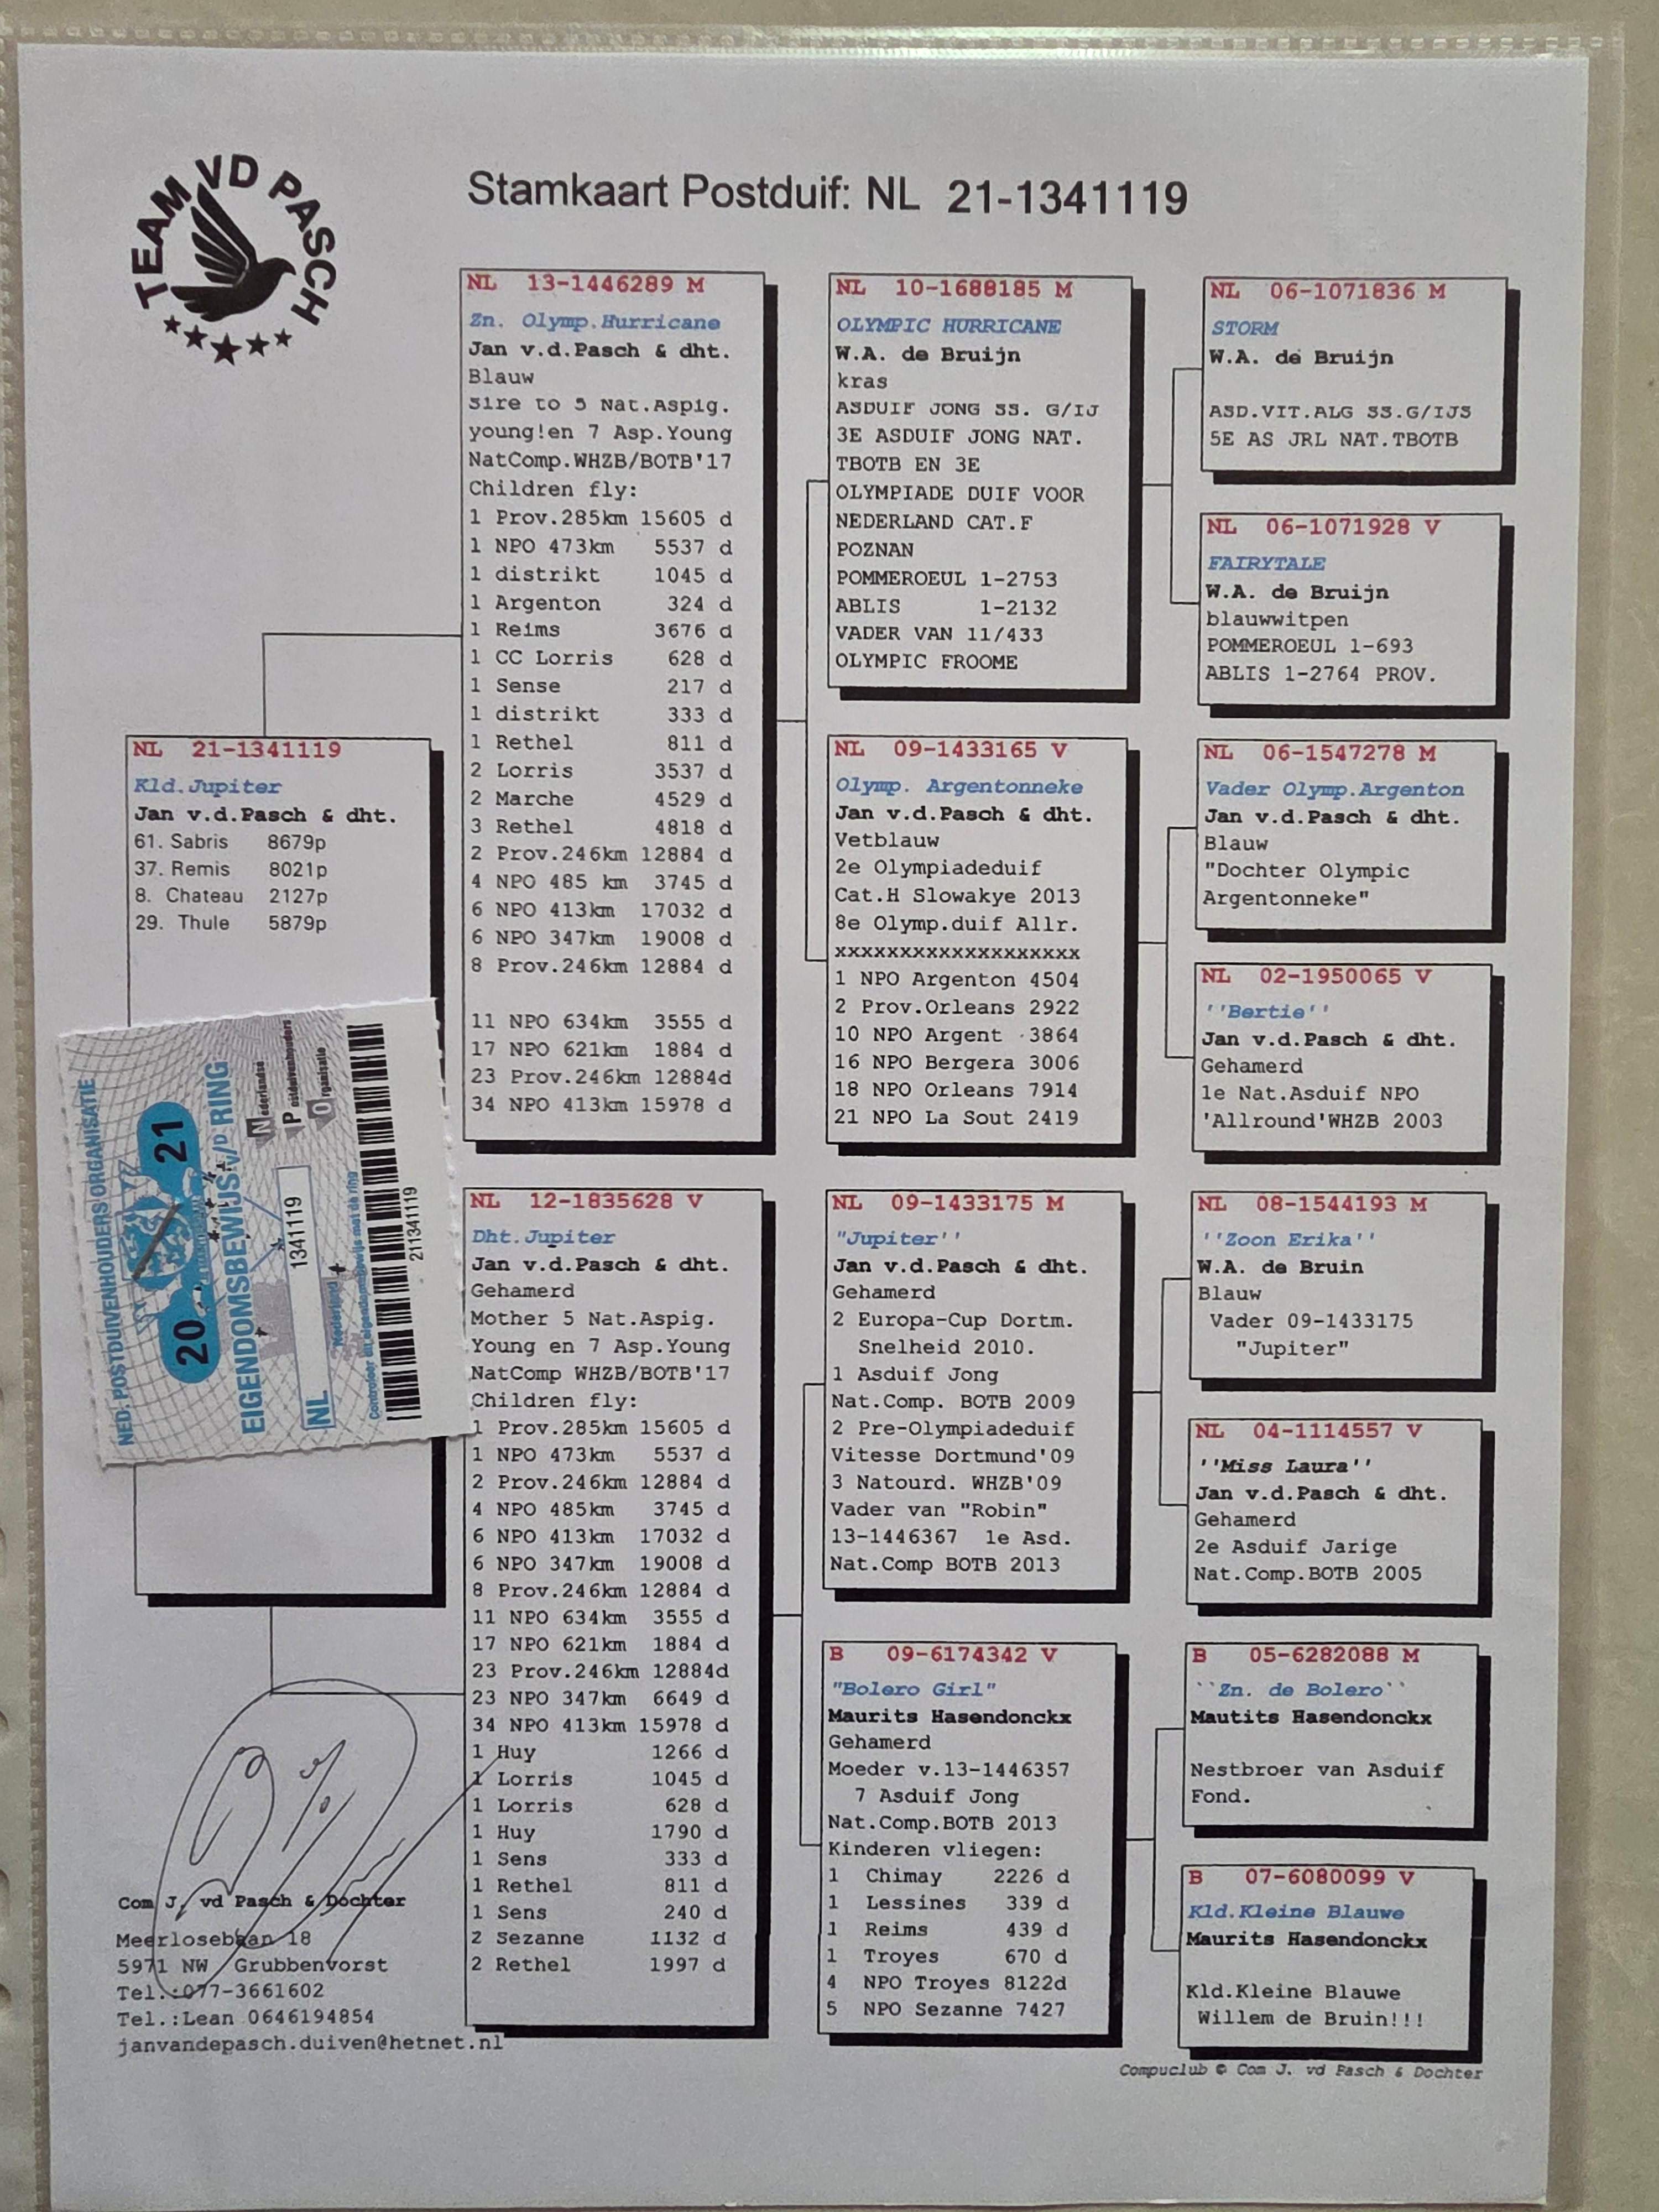 TEAM VD PASCH
Stamkaart Postduif: NL 21-1341119
NL 21-1341119
Kld.Jupiter
Jan v.d.Pasch & dht.
61. Sabris 8679p
37. Remis 8021p
8. Chateau 2127p
29. Thule 5879p
NED. POSTDUIVENHOUDERS ORGANISATIE
20 21
EIGENDOMSBEWIJS V/D RING
Nederlandse
Postduivenhouders
Organisatie
NL 1341119
"Nederland"
Controleer dit eigendomsbewijs met de ring
211341119
NL 13-1446289 M
Zn. Olymp.Hurricane
Jan v.d.Pasch & dht.
Blauw
Sire to 5 Nat.Aspig.
young!en 7 Asp.Young
NatComp.WHZB/BOTB'17
Children fly:
1 Prov.285km 15605 d
1 NPO 473km 5537 d
1 distrikt 1045 d
1 Argenton 324 d
1 Reims 3676 d
1 CC Lorris 628 d
1 Sense 217 d
1 distrikt 333 d
1 Rethel 811 d
2 Lorris 3537 d
2 Marche 4529 d
3 Rethel 4818 d
2 Prov.246km 12884 d
4 NPO 485 km 3745 d
6 NPO 413km 17032 d
6 NPO 347km 19008 d
8 Prov.246km 12884 d
11 NPO 634km 3555 d
17 NPO 621km 1884 d
23 Prov.246km 12884d
34 NPO 413km 15978 d
NL 12-1835628 V
Dht.Jupiter
Jan v.d.Pasch & dht.
Gehamerd
Mother 5 Nat.Aspig.
Young en 7 Asp.Young
NatComp WHZB/BOTB'17
Children fly:
1 Prov.285km 15605 d
1 NPO 473km 5537 d
2 Prov.246km 12884 d
4 NPO 485km 3745 d
6 NPO 413km 17032 d
6 NPO 347km 19008 d
8 Prov.246km 12884 d
11 NPO 634km 3555 d
17 NPO 621km 1884 d
23 Prov.246km 12884d
23 NPO 347km 6649 d
34 NPO 413km 15978 d
1 Huy 1266 d
1 Lorris 1045 d
1 Lorris 628 d
1 Huy 1790 d
1 Sens 333 d
1 Rethel 811 d
1 Sens 240 d
2 Sezanne 1132 d
2 Rethel 1997 d
NL 10-1688185 M
OLYMPIC HURRICANE
W.A. de Bruijn
kras
ASDUIF JONG SS. G/IJ
3E ASDUIF JONG NAT.
TBOTB EN 3E
OLYMPIADE DUIF VOOR
NEDERLAND CAT.F
POZNAN
POMMEROEUL 1-2753
ABLIS 1-2132
VADER VAN 11/433
OLYMPIC FROOME
NL 09-1433165 V
Olymp. Argentonneke
Jan v.d.Pasch & dht.
Vetblauw
2e Olympiadeduif
Cat.H Slowakye 2013
8e Olymp.duif Allr.
xxxxxxxxxxxxxxxxxxx
1 NPO Argenton 4504
2 Prov.Orleans 2922
10 NPO Argent 3864
16 NPO Bergera 3006
18 NPO Orleans 7914
21 NPO La Sout 2419
NL 09-1433175 M
"Jupiter''
Jan v.d.Pasch & dht.
Gehamerd
2 Europa-Cup Dortm.
Snelheid 2010.
1 Asduif Jong
Nat.Comp. BOTB 2009
2 Pre-Olympiadeduif
Vitesse Dortmund'09
3 Natourd. WHZB'09
Vader van "Robin"
13-1446367 1e Asd.
Nat.Comp BOTB 2013
B 09-6174342 V
"Bolero Girl"
Maurits Hasendonckx
Gehamerd
Moeder v.13-1446357
7 Asduif Jong
Nat.Comp.BOTB 2013
Kinderen vliegen:
1 Chimay 2226 d
1 Lessines 339 d
1 Reims 439 d
1 Troyes 670 d
4 NPO Troyes 8122d
5 NPO Sezanne 7427
NL 06-1071836 M
STORM
W.A. de Bruijn
ASD.VIT.ALG SS.G/IJS
5E AS JRL NAT.TBOTB
NL 06-1071928 V
FAIRYTALE
W.A. de Bruijn
blauwwitpen
POMMEROEUL 1-693
ABLIS 1-2764 PROV.
NL 06-1547278 M
Vader Olymp.Argenton
Jan v.d.Pasch & dht.
Blauw
"Dochter Olympic
Argentonneke"
NL 02-1950065 V
''Bertie''
Jan v.d.Pasch & dht.
Gehamerd
1e Nat.Asduif NPO
'Allround'WHZB 2003
NL 08-1544193 M
''Zoon Erika''
W.A. de Bruin
Blauw
Vader 09-1433175
"Jupiter"
NL 04-1114557 V
''Miss Laura''
Jan v.d.Pasch & dht.
Gehamerd
2e Asduif Jarige
Nat.Comp.BOTB 2005
B 05-6282088 M
``Zn. de Bolero``
Mautits Hasendonckx
Nestbroer van Asduif
Fond.
B 07-6080099 V
Kld.Kleine Blauwe
Maurits Hasendonckx
Kld.Kleine Blauwe
Willem de Bruin!!!
Com J. vd Pasch & Dochter
Meerlosebaan 18
5971 NW Grubbenvorst
Tel.:077-3661602
Tel.:Lean 0646194854
janvandepasch.duiven@hetnet.nl
Compuclub © Com J. vd Pasch & Dochter